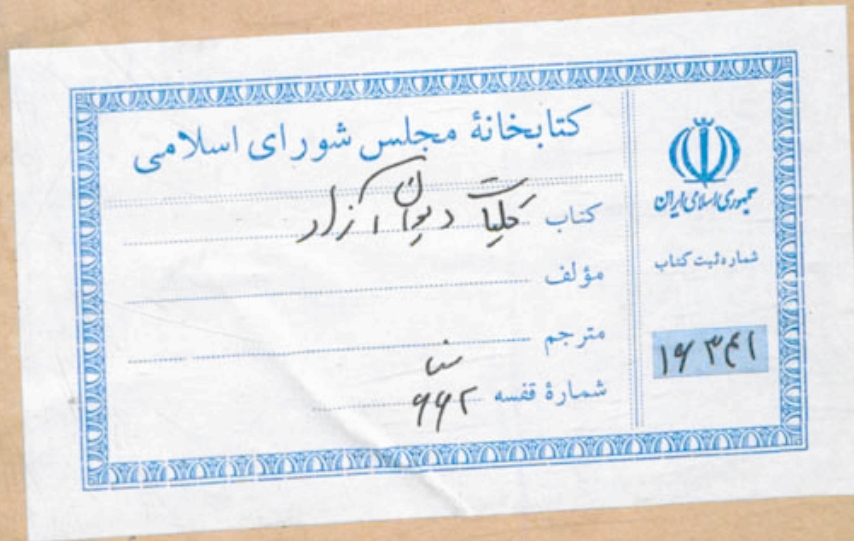 کتابخانهٔ مجلس شورای اسلامی
کتاب کلیات دیوان آزاد
مؤلف
مترجم
شمارهٔ قفسه ۶۶۲
جمهوری اسلامی ایران
شماره ثبت کتاب